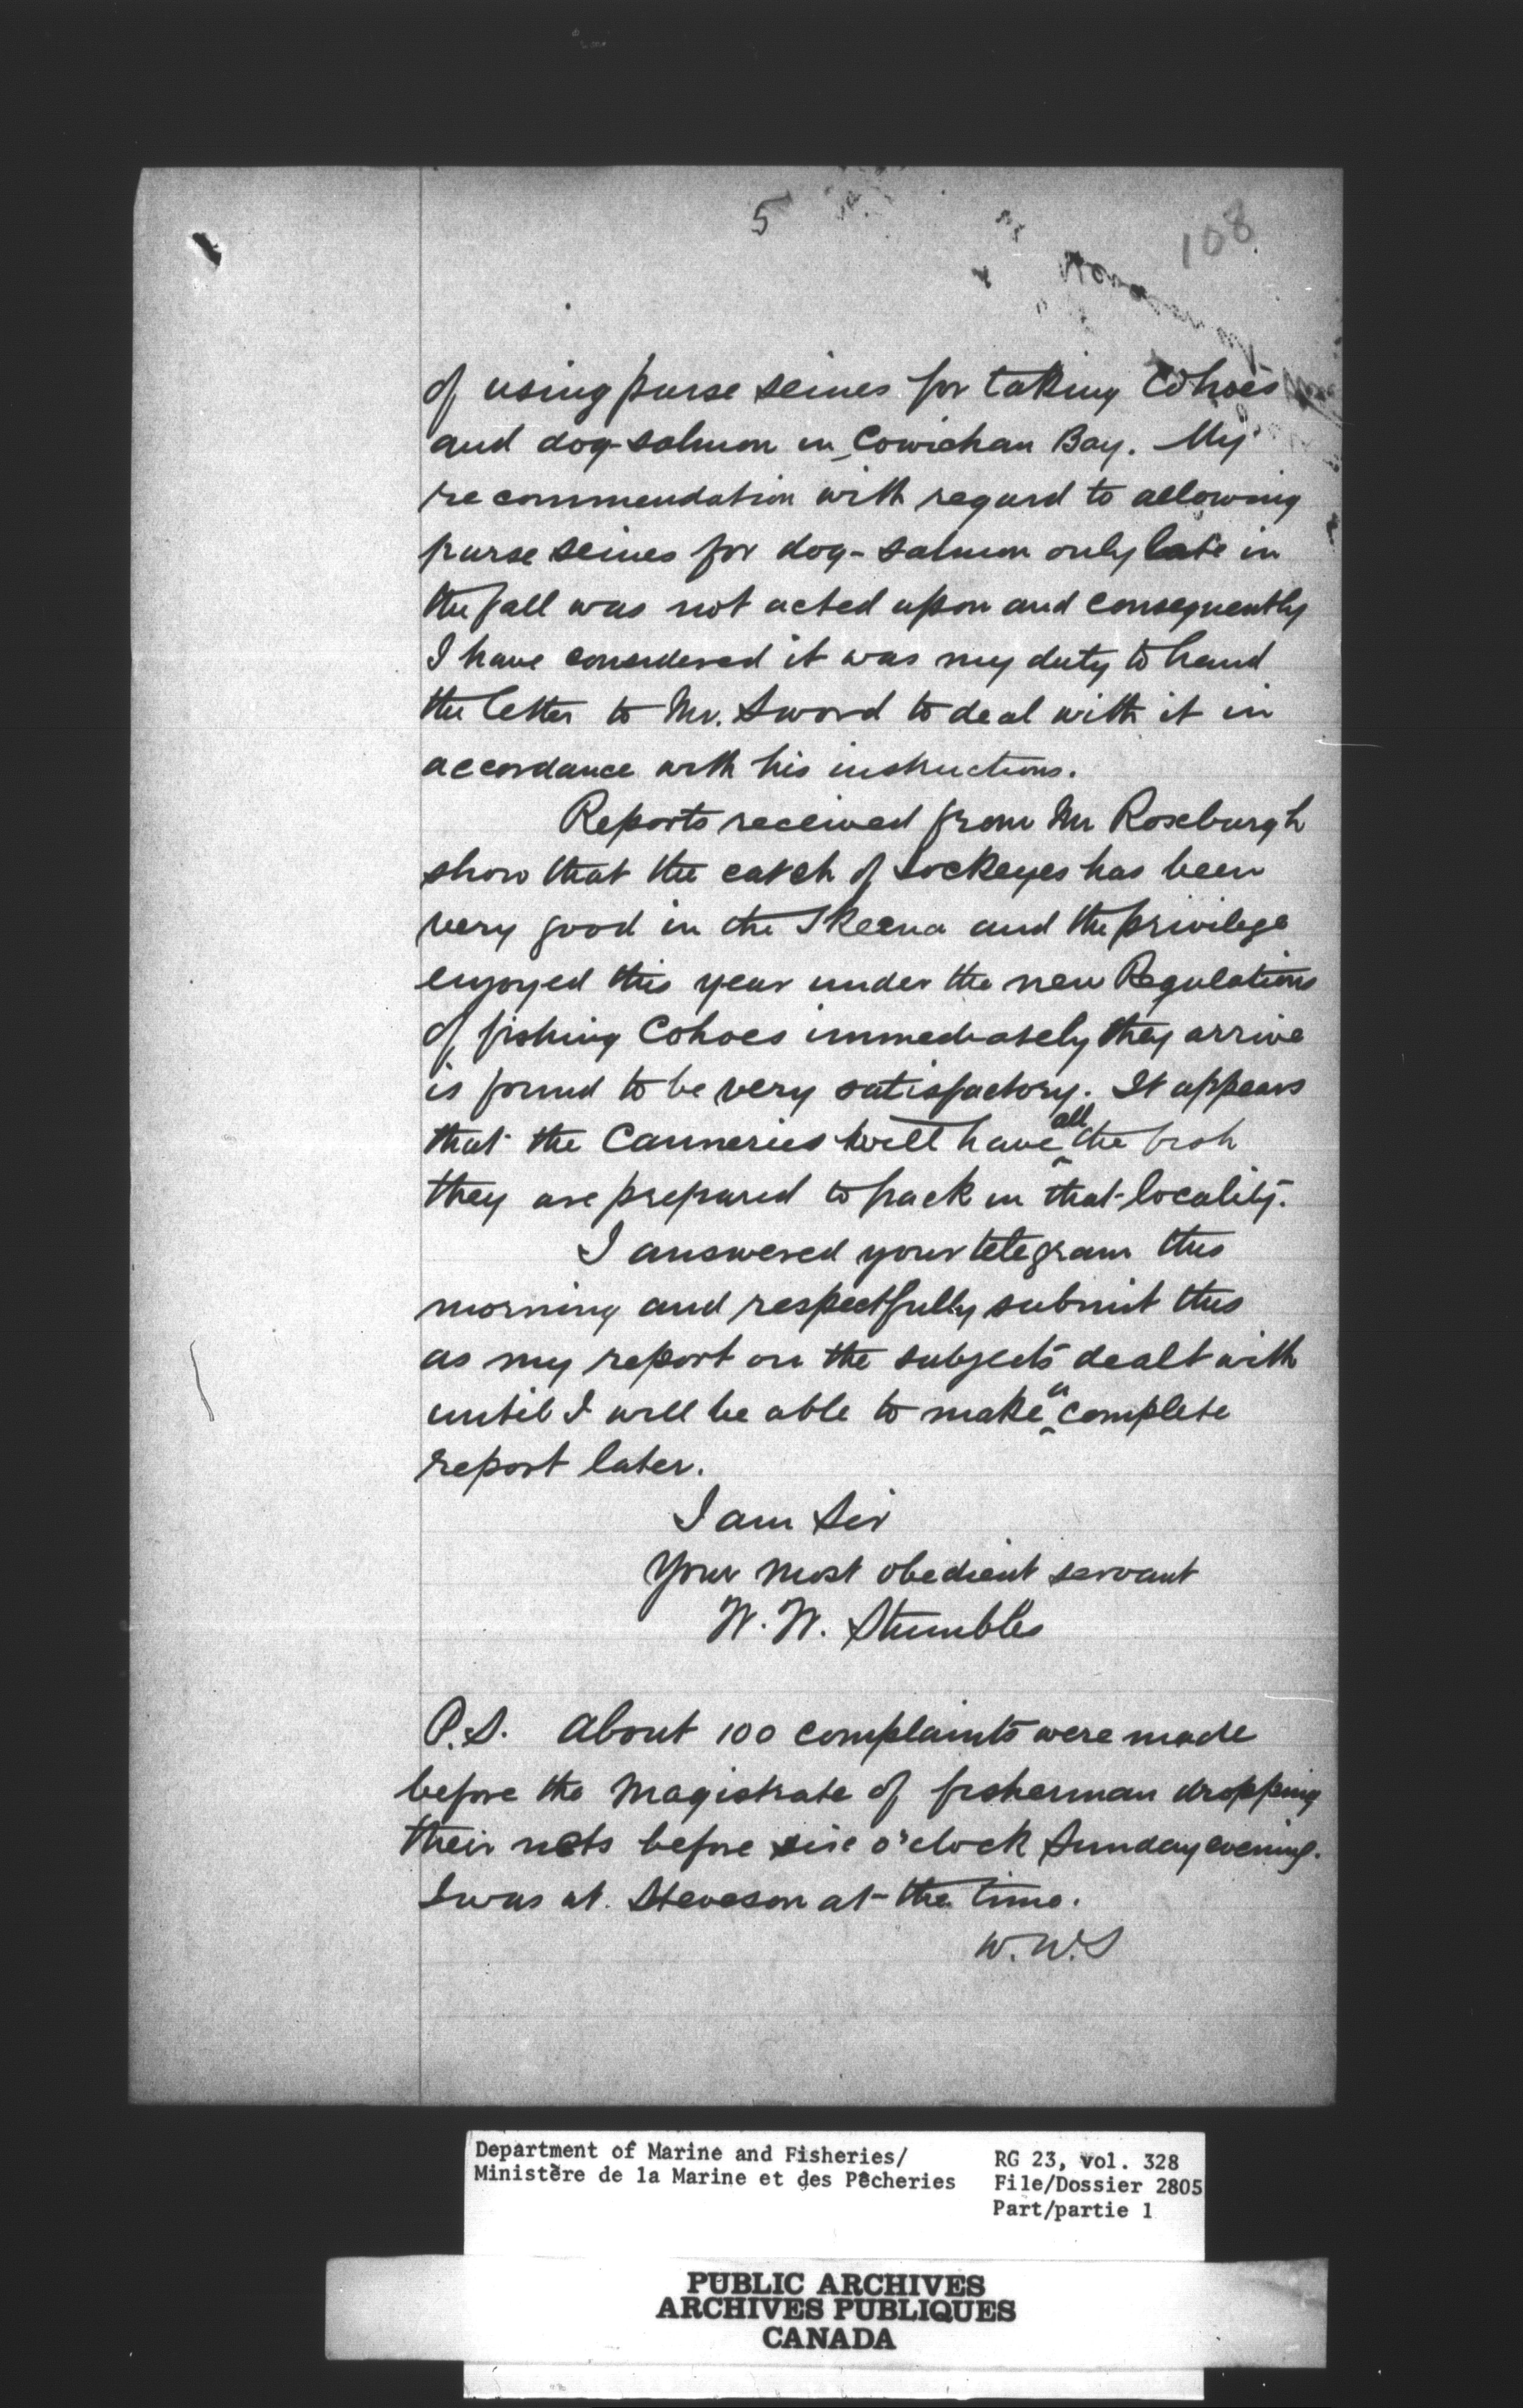 5
108
of using purse seines for taking Cohoes
and dog-salmon in Cowichan Bay. My
recommendation with regard to allowing
purse seines for dog-salmon only late in
the fall was not acted upon and consequently
I have considered it was my duty to hand
the letter to Mr. Sword to deal with it in
accordance with his instructions.
Reports received from Mr Roxburgh
show that the catch of Sockeyes has been
very good in the Skeena and the privilege
enjoyed this year under the new Regulations
of fishing Cohoes immediately they arrive
is found to be very satisfactory. It appears
that the Canneries will have all the fish
they are prepared to pack in that locality.
I answered your telegram this
morning and respectfully submit this
as my report on the subjects dealt with
until I will be able to make a complete
report later.
I am Sir
Your most obedient servant
W. W. Stumbles
P.S. About 100 complaints were made
before the Magistrate of fisherman dropping
their nets before six o'clock Sunday evening.
I was at Steveson at the time.
W.W.S
Department of Marine and Fisheries/
Ministère de la Marine et des Pêcheries
RG 23, vol. 328
File/Dossier 2805
Part/partie 1
PUBLIC ARCHIVES
ARCHIVES PUBLIQUES
CANADA